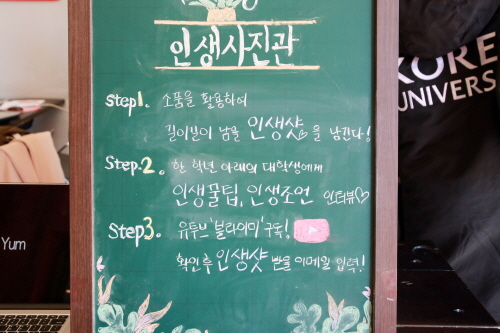 인생사진관
step1. 소품을 활용하여
길이길이 남을 인생샷을 남긴다!
Step.2. 한 학년 아래의 대학생에게
인생꿀팁, 인생조언 인터뷰♡
Step3. 유투브 '블라이미' 구독!
확인 후 인생샷 받을 이메일 입력!
KORE
UNIVERS
Yum